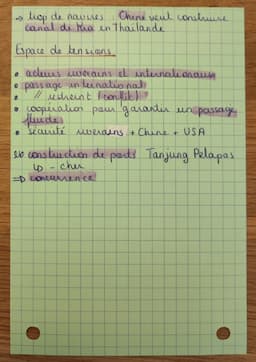 → trop de navires. Chine veut construire
canal de Kra en Thaïlande
Espace de tensions
• acteurs riverains et internationaux
• passage international
• // restreint (conflit)
• coopération pour garantir un passage
fluide
• sécurité riverains + Chine + USA
construction de ports Tanjung Pelapas
↳ - cher
⇒ concurrence